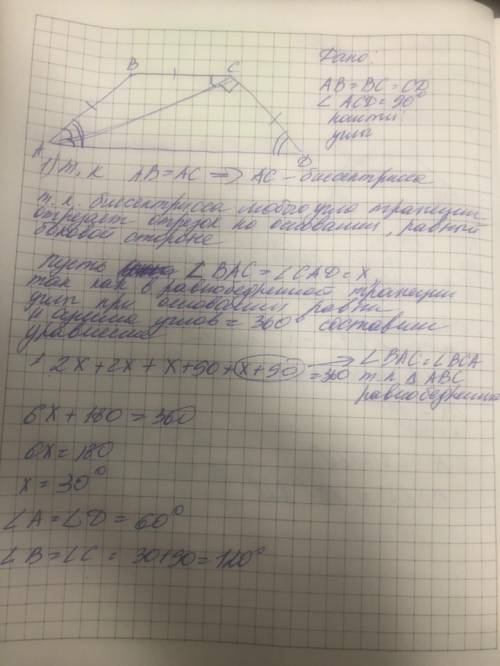 B C
A D
Дано:
AB = BC = CD
∠ACD = 90°
найти
углы
1) т.к AB = AC => AC - биссектрисса
т.к. биссектрисса любого угла трапеции
отрезает отрезок на основании, равный
боковой стороне
пусть ∠BAC = ∠CAD = x
так как в равнобедренной трапеции
углы при основании равны
и сумма углов = 360° составим
уравнение
2x + 2x + x + 90 + x + 90 = 360
∠BAC = ∠BCA
т.к △ABC
равнобедренный
6x + 180 = 360
6x = 180
x = 30°
∠A = ∠D = 60°
∠B = ∠C = 30+90 = 120°